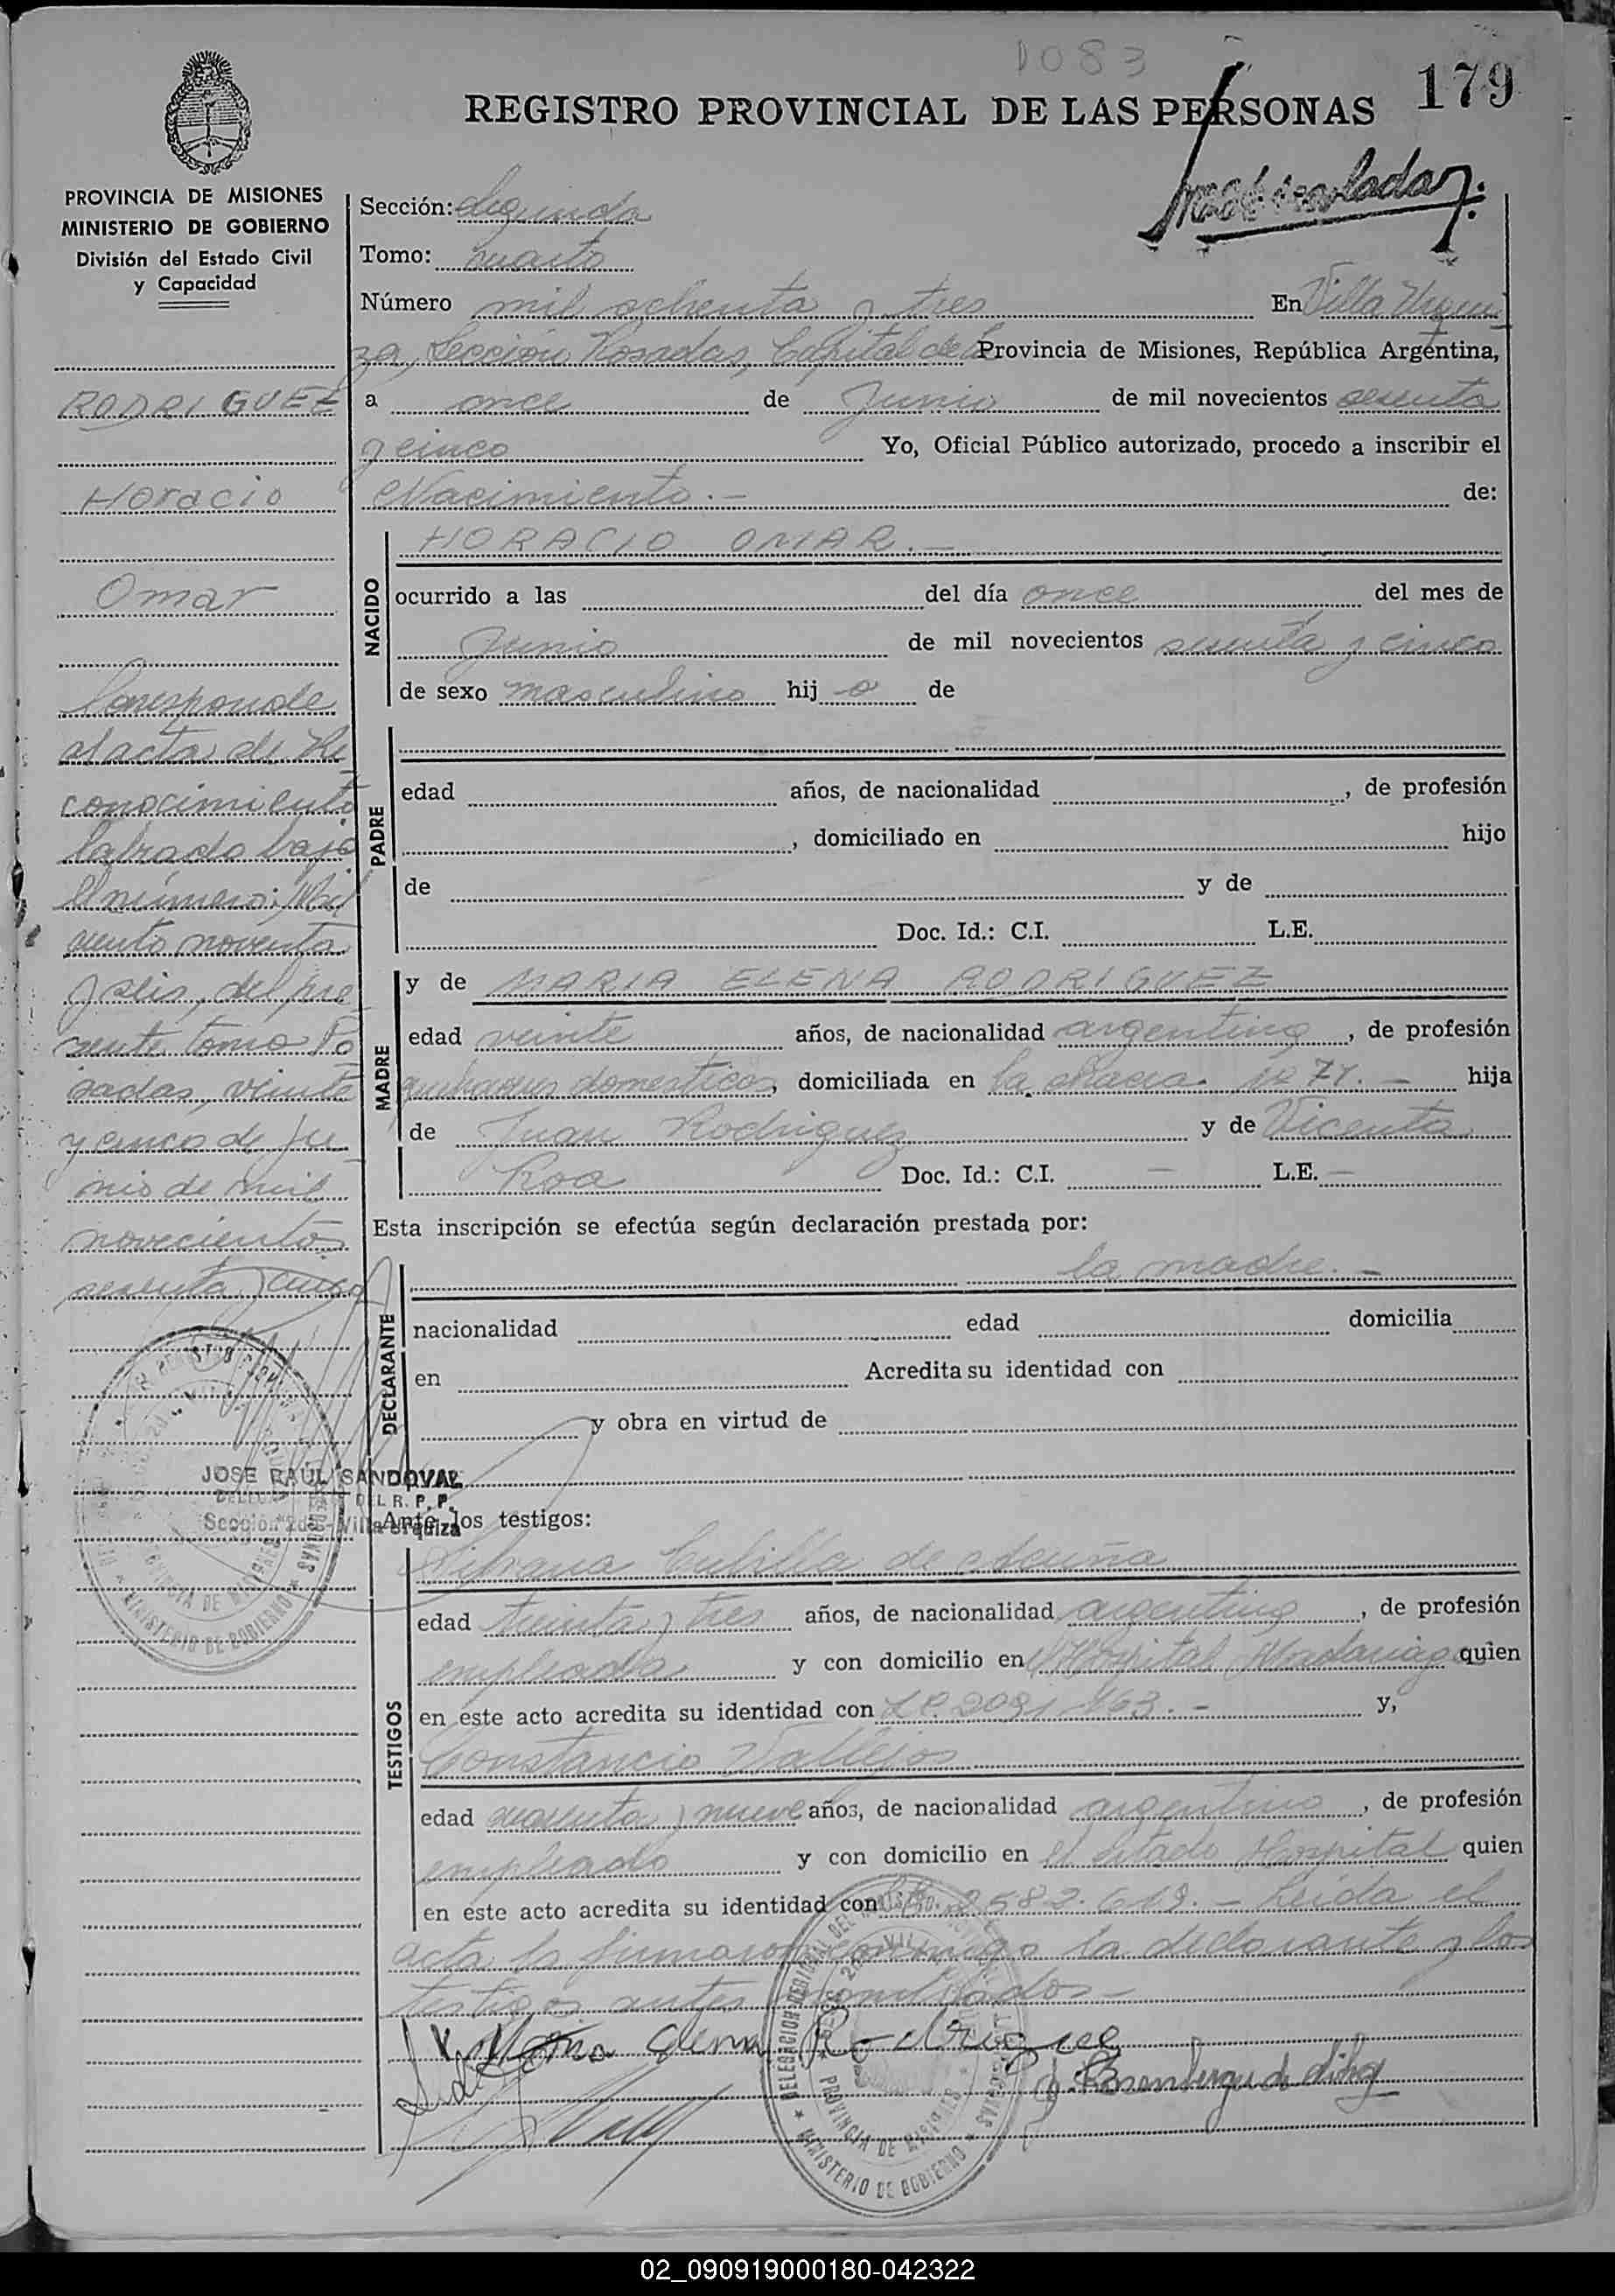 1083
179
REGISTRO PROVINCIAL DE LAS PERSONAS
Matriculada
PROVINCIA DE MISIONES
MINISTERIO DE GOBIERNO
División del Estado Civil
y Capacidad
RODRIGUEZ
Horacio
Omar
Corresponde
al acta de Re
conocimiento
labrado bajo
el número: Mil
ciento noventa
y seis, del pre
sente tomo Po
sadas, veinte
y cinco de ju
nio de mil
novecientos
sesenta y cinco
JOSE RAUL SANDOVAL
DEL R. P. P.
Sección 2da - Villa Urquiza
Sección: Segunda
Tomo: cuarto
Número mil ochenta y tres En Villa Urqui
za, Sección Posadas, Capital de la Provincia de Misiones, República Argentina,
a once de Junio de mil novecientos sesenta
y cinco Yo, Oficial Público autorizado, procedo a inscribir el
Nacimiento.- de:
NACIDO
HORACIO OMAR.-
ocurrido a las del día once del mes de
Junio de mil novecientos sesenta y cinco
de sexo masculino hij o de
PADRE
edad años, de nacionalidad , de profesión
, domiciliado en hijo
de y de
Doc. Id.: C.I. L.E.
MADRE
y de MARIA ELENA RODRIGUEZ
edad veinte años, de nacionalidad argentina, de profesión
quehaceres domesticos, domiciliada en la chacra nº 71.- hija
de Juan Rodriguez y de Vicenta
Roa Doc. Id.: C.I. - L.E. -
Esta inscripción se efectúa según declaración prestada por:
DECLARANTE
la madre.-
nacionalidad edad domicilia
en Acredita su identidad con
y obra en virtud de
Ante los testigos:
TESTIGOS
Cubilla de Acuña
edad treinta y tres años, de nacionalidad argentina, de profesión
empleada y con domicilio en el Hospital Madariaga quien
en este acto acredita su identidad con y,
Constancio Vallejos
edad cuarenta y nueve años, de nacionalidad argentino, de profesión
empleado y con domicilio en el citado Hospital quien
en este acto acredita su identidad con 2582.619.- Leida el
acta la firmaron conmigo la declarante y los
testigos antes nombrados-
Maria Elena Rodriguez
DELEGACION REGISTRO PROVINCIAL DE LAS PERSONAS
PROVINCIA DE MISIONES
MINISTERIO DE GOBIERNO
02_090919000180-042322